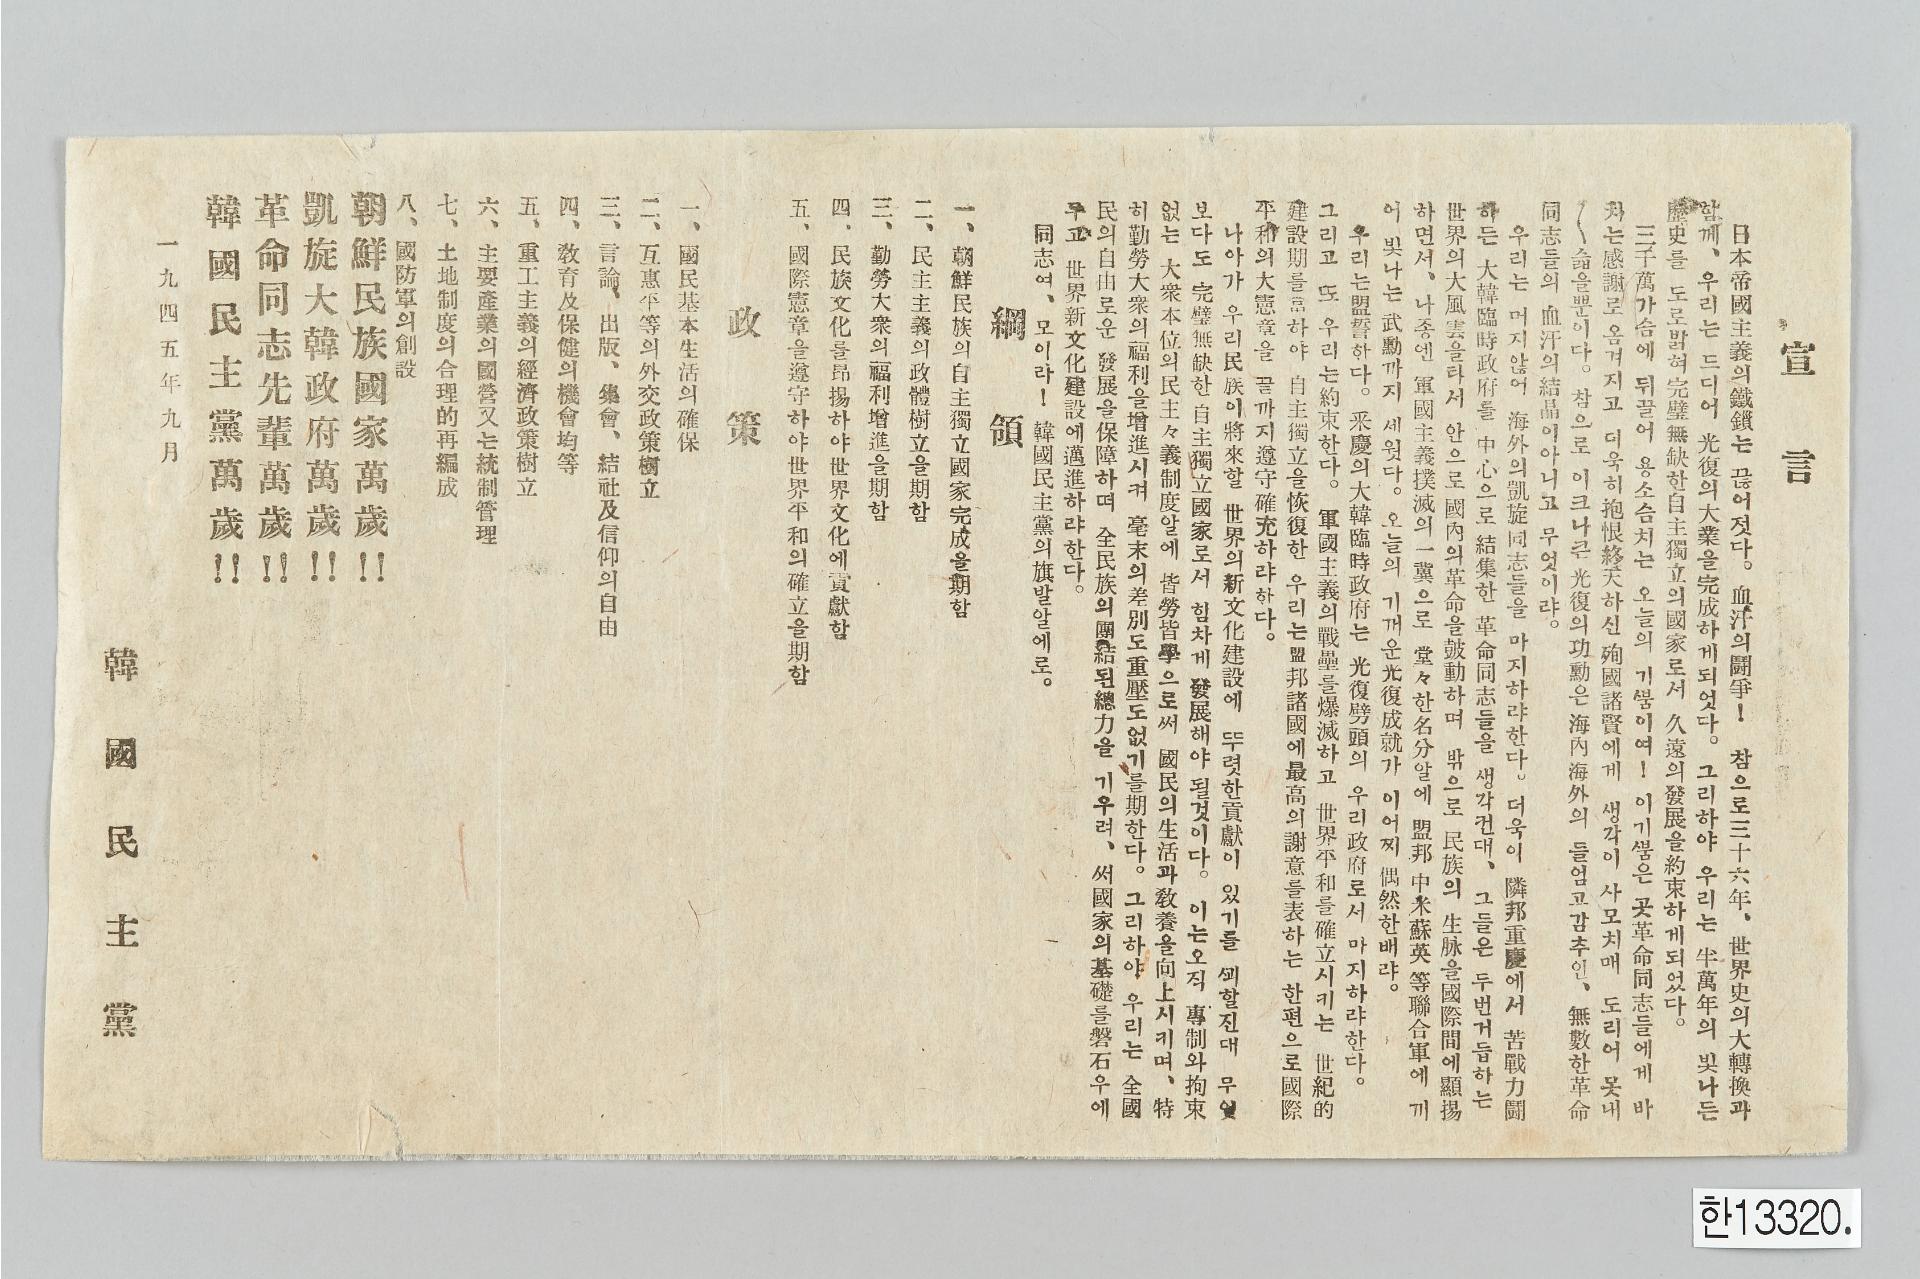 宣言
日本帝國主義의鐵鎖는 끊어젓다。血汗의鬪爭! 참으로三十六年、世界史의大轉換과
함께、우리는 드디어 光復의大業을完成하게되엇다。그리하야 우리는 半萬年의 빛나든
歷史를 도로밝혀完璧無缺한自主獨立의國家로서 久遠의發展을約束하게되었다。
三千萬가슴에 뒤끌어 용소슴치는 오늘의 기쁨이여! 이기쁨은 곳革命同志들에게 바
치는感謝로옴겨지고 더욱히抱恨終天하신 殉國諸賢에게 생각이 사모치매 도리어 못내
슯을뿐이다。참으로 이크나큰光復의功勳은海內海外의 들엄고감추인、無數한革命
同志들의 血汗의結晶이아니고 무엇이랴。
우리는 머지않어 海外의凱旋同志들을 마지하랴한다。더욱이 隣邦重慶에서 苦戰力鬪
하든 大韓臨時政府를 中心으로結集한 革命同志들을생각컨대、그들은 두번거듭하는
世界의大風雲을타서 안으로國內의革命을鼓動하며 밖으로 民族의 生脉을國際間에顯揚
하면서、나종엔 軍國主義撲滅의一翼으로 堂々한名分알에 盟邦 中米蘇英等聯合軍에 끼
어 빛나는 武勳까지 세웟다。오늘의 기꺼운光復成就가 이어찌 偶然한배랴。
우리는盟誓하다。釆慶의大韓臨時政府는 光復劈頭의 우리政府로서 마지하랴한다。
그리고 또 우리는約束한다。軍國主義의戰壘를爆滅하고 世界平和를確立시키는 世紀的
建設期를 하야 自主獨立을恢復한 우리는盟邦諸國에最高의謝意를表하는 한편으로國際
平和의大憲章을 끝까지遵守確充하랴하다。
나아가 우리民族이將來할 世界의新文化建設에 뚜렷한貢獻이 있기를 꾀할진대 무엇
보다도 完璧無缺한自主獨立國家로서 힘차게發展해야 될것이다。이는오직 專制와拘束
없는 大衆本位의民主々義制度알에 皆勞皆學으로써 國民의生活과敎養을向上시키며、特
히勤勞大衆의福利을增進시켜 毫末의差別도重壓도없기를期한다。그리하야 우리는 全國
民의自由로운 發展을保障하며 全民族의團結된總力을 기우려、써國家의基礎를磐石우에
두고 世界新文化建設에邁進하랴한다。
同志여、모이라! 韓國民主黨의旗발알에로。
綱領
一、朝鮮民族의自主獨立國家完成을期함
二、民主主義의政體樹立을期함
三、勤勞大衆의福利增進을期함
四、民族文化를昂揚하야世界文化에貢獻함
五、國際憲章을遵守하야世界平和의確立을期함
政策
一、國民基本生活의確保
二、互惠平等의外交政策樹立
三、言論、出版、集會、結社及信仰의自由
四、敎育及保健의機會均等
五、重工主義의經濟政策樹立
六、主要產業의國營又는統制管理
七、土地制度의合理的再編成
八、國防軍의創設
朝鮮民族國家萬歲!!
凱旋大韓政府萬歲!!
革命同志先輩萬歲!!
韓國民主黨萬歲!!
一九四五年九月
韓國民主黨
한13320.